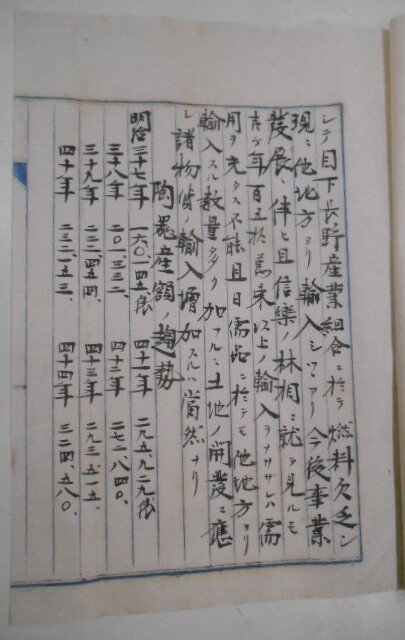 シテ目下長野産業組合ニ於テ燃料欠乏シ
現ニ他地方ヨリ輸入シツヽアリ今後事業
發展ニ伴ヒ且信樂ノ林相ニ就テ見ルモ
年百五拾萬束以上ノ輸入ヲナサヽレハ需
用ヲ充タス不能且日需品ニ於テモ他地方ヨリ
輸入スル数量多ク加フルニ土地ノ開発ニ應
シ諸物貨ノ輸入増加スルハ當然ナリ
陶器産額ノ趨勢
明治三十七年 一六〇、一四五俵 四十一年 二九五、九二九俵
三十八年 二〇一、三三二、 四十二年 二七一、八四〇、
三十九年 二二二、四五四、 四十三年 二九三、五一五、
四十年 二三二、一五三、 四十四年 三二四、五八〇、